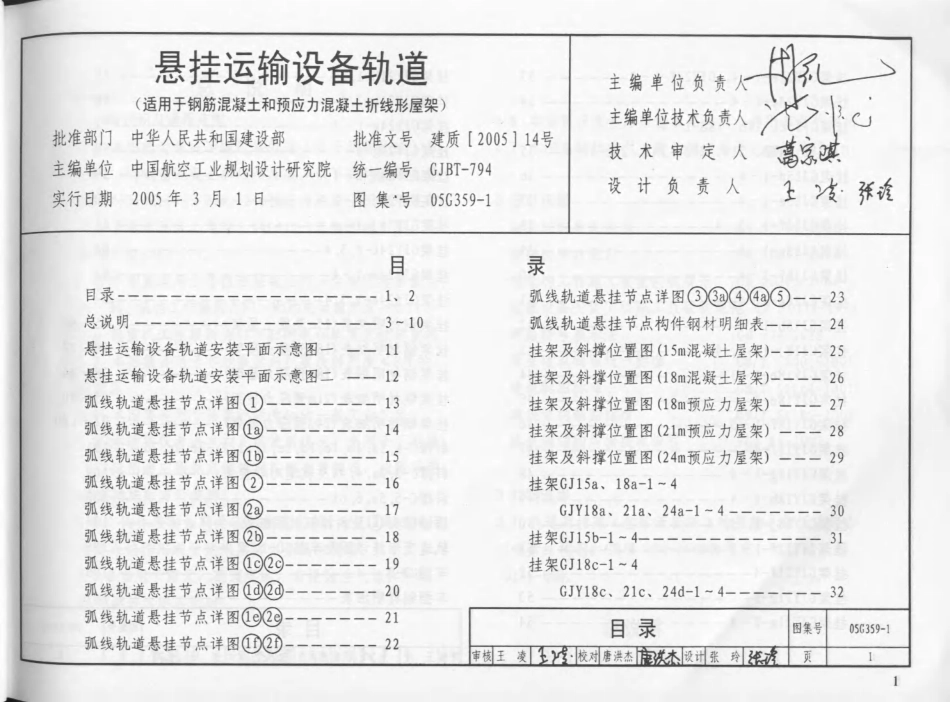 悬挂运输设备轨道
(适用于钢筋混凝土和预应力混凝土折线形屋架)
批准部门 中华人民共和国建设部 批准文号 建质[2005]14号
主编单位 中国航空工业规划设计研究院 统一编号 GJBT-794
实行日期 2005年3月1日 图集号 05G359-1
主编单位负责人
主编单位技术负责人
技术审定人 葛宗祺
设计负责人 王凌 张玲
目录
目录 1、2
总说明 3~10
悬挂运输设备轨道安装平面示意图一 11
悬挂运输设备轨道安装平面示意图二 12
弧线轨道悬挂节点详图① 13
弧线轨道悬挂节点详图1a 14
弧线轨道悬挂节点详图1b 15
弧线轨道悬挂节点详图② 16
弧线轨道悬挂节点详图2a 17
弧线轨道悬挂节点详图2b 18
弧线轨道悬挂节点详图1c 2c 19
弧线轨道悬挂节点详图1d 2d 20
弧线轨道悬挂节点详图1e 2e 21
弧线轨道悬挂节点详图1f 2f 22
弧线轨道悬挂节点详图③ 3a ④ 4a ⑤ 23
弧线轨道悬挂节点构件钢材明细表 24
挂架及斜撑位置图(15m混凝土屋架) 25
挂架及斜撑位置图(18m混凝土屋架) 26
挂架及斜撑位置图(18m预应力屋架) 27
挂架及斜撑位置图(21m预应力屋架) 28
挂架及斜撑位置图(24m预应力屋架) 29
挂架GJ15a、18a-1~4
GJY18a、21a、24a-1~4 30
挂架GJ15b-1~4 31
挂架GJ18c-1~4
GJY18c、21c、24d-1~4 32
目录 图集号 05G359-1
审核 王凌 王凌 校对 唐洪杰 唐洪杰 设计 张玲 张玲 页 1
1